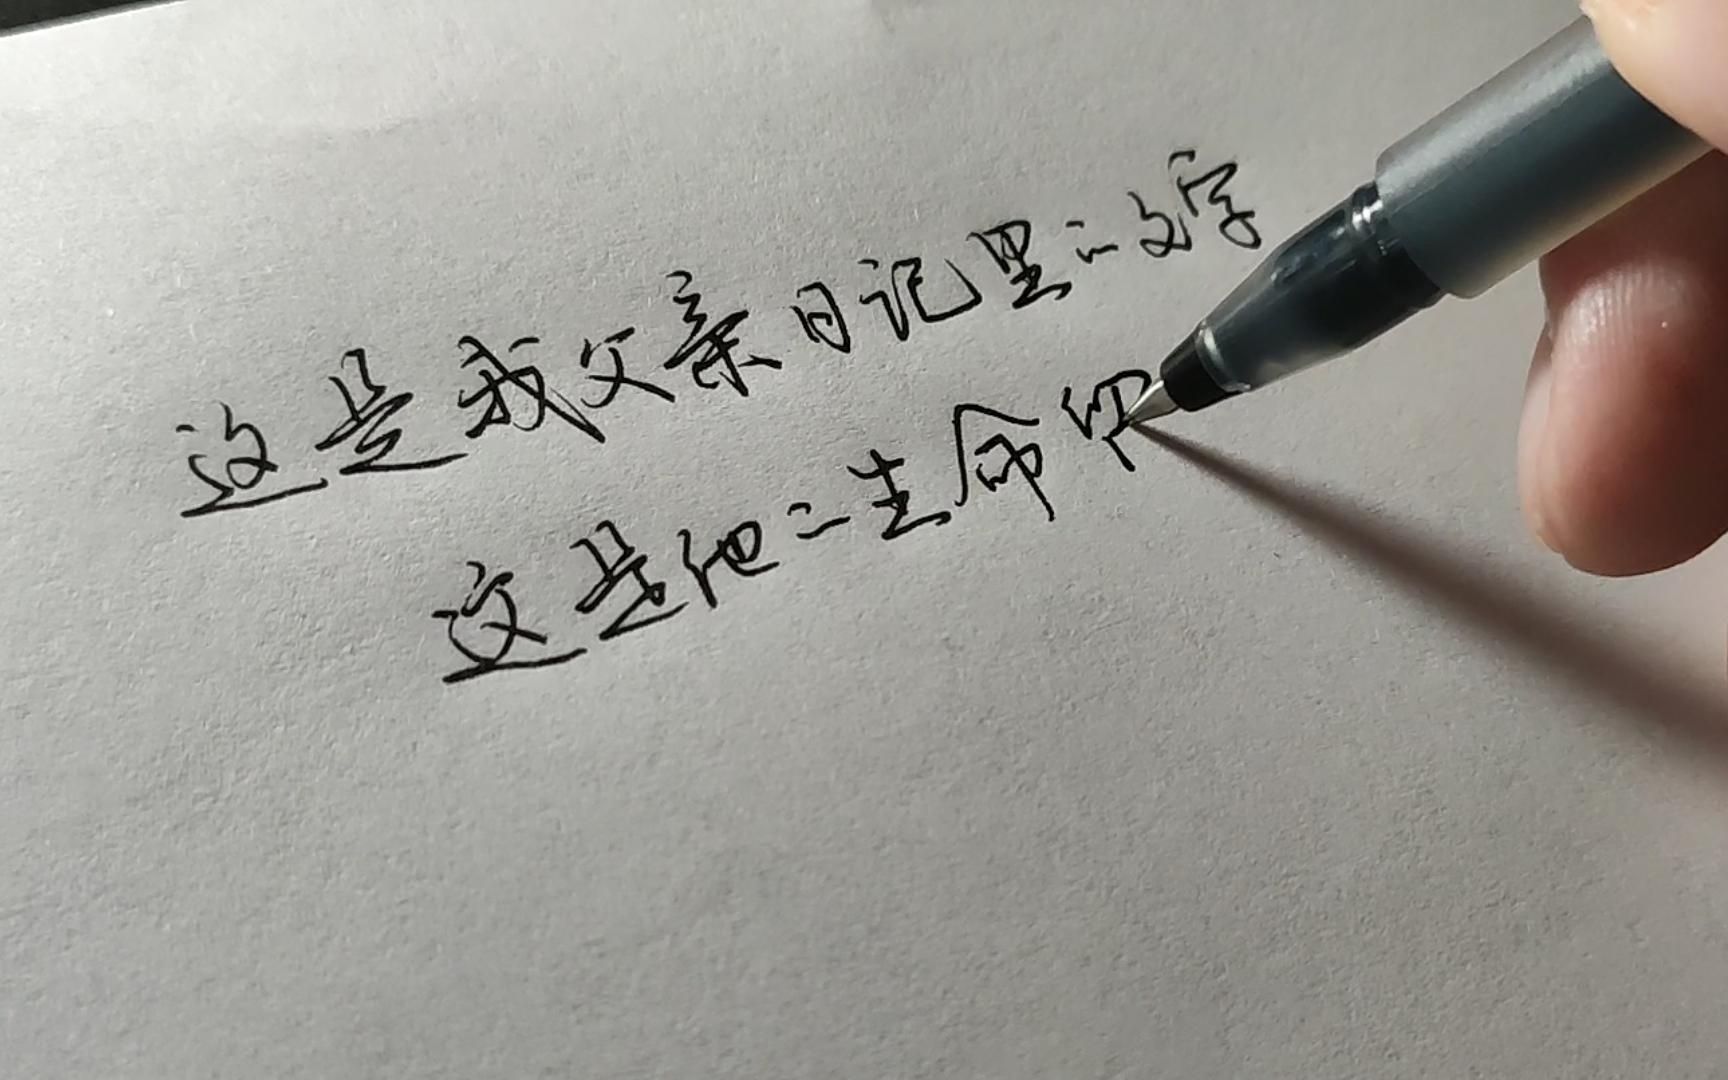 这是我父亲日记里的文字
这是他的生命